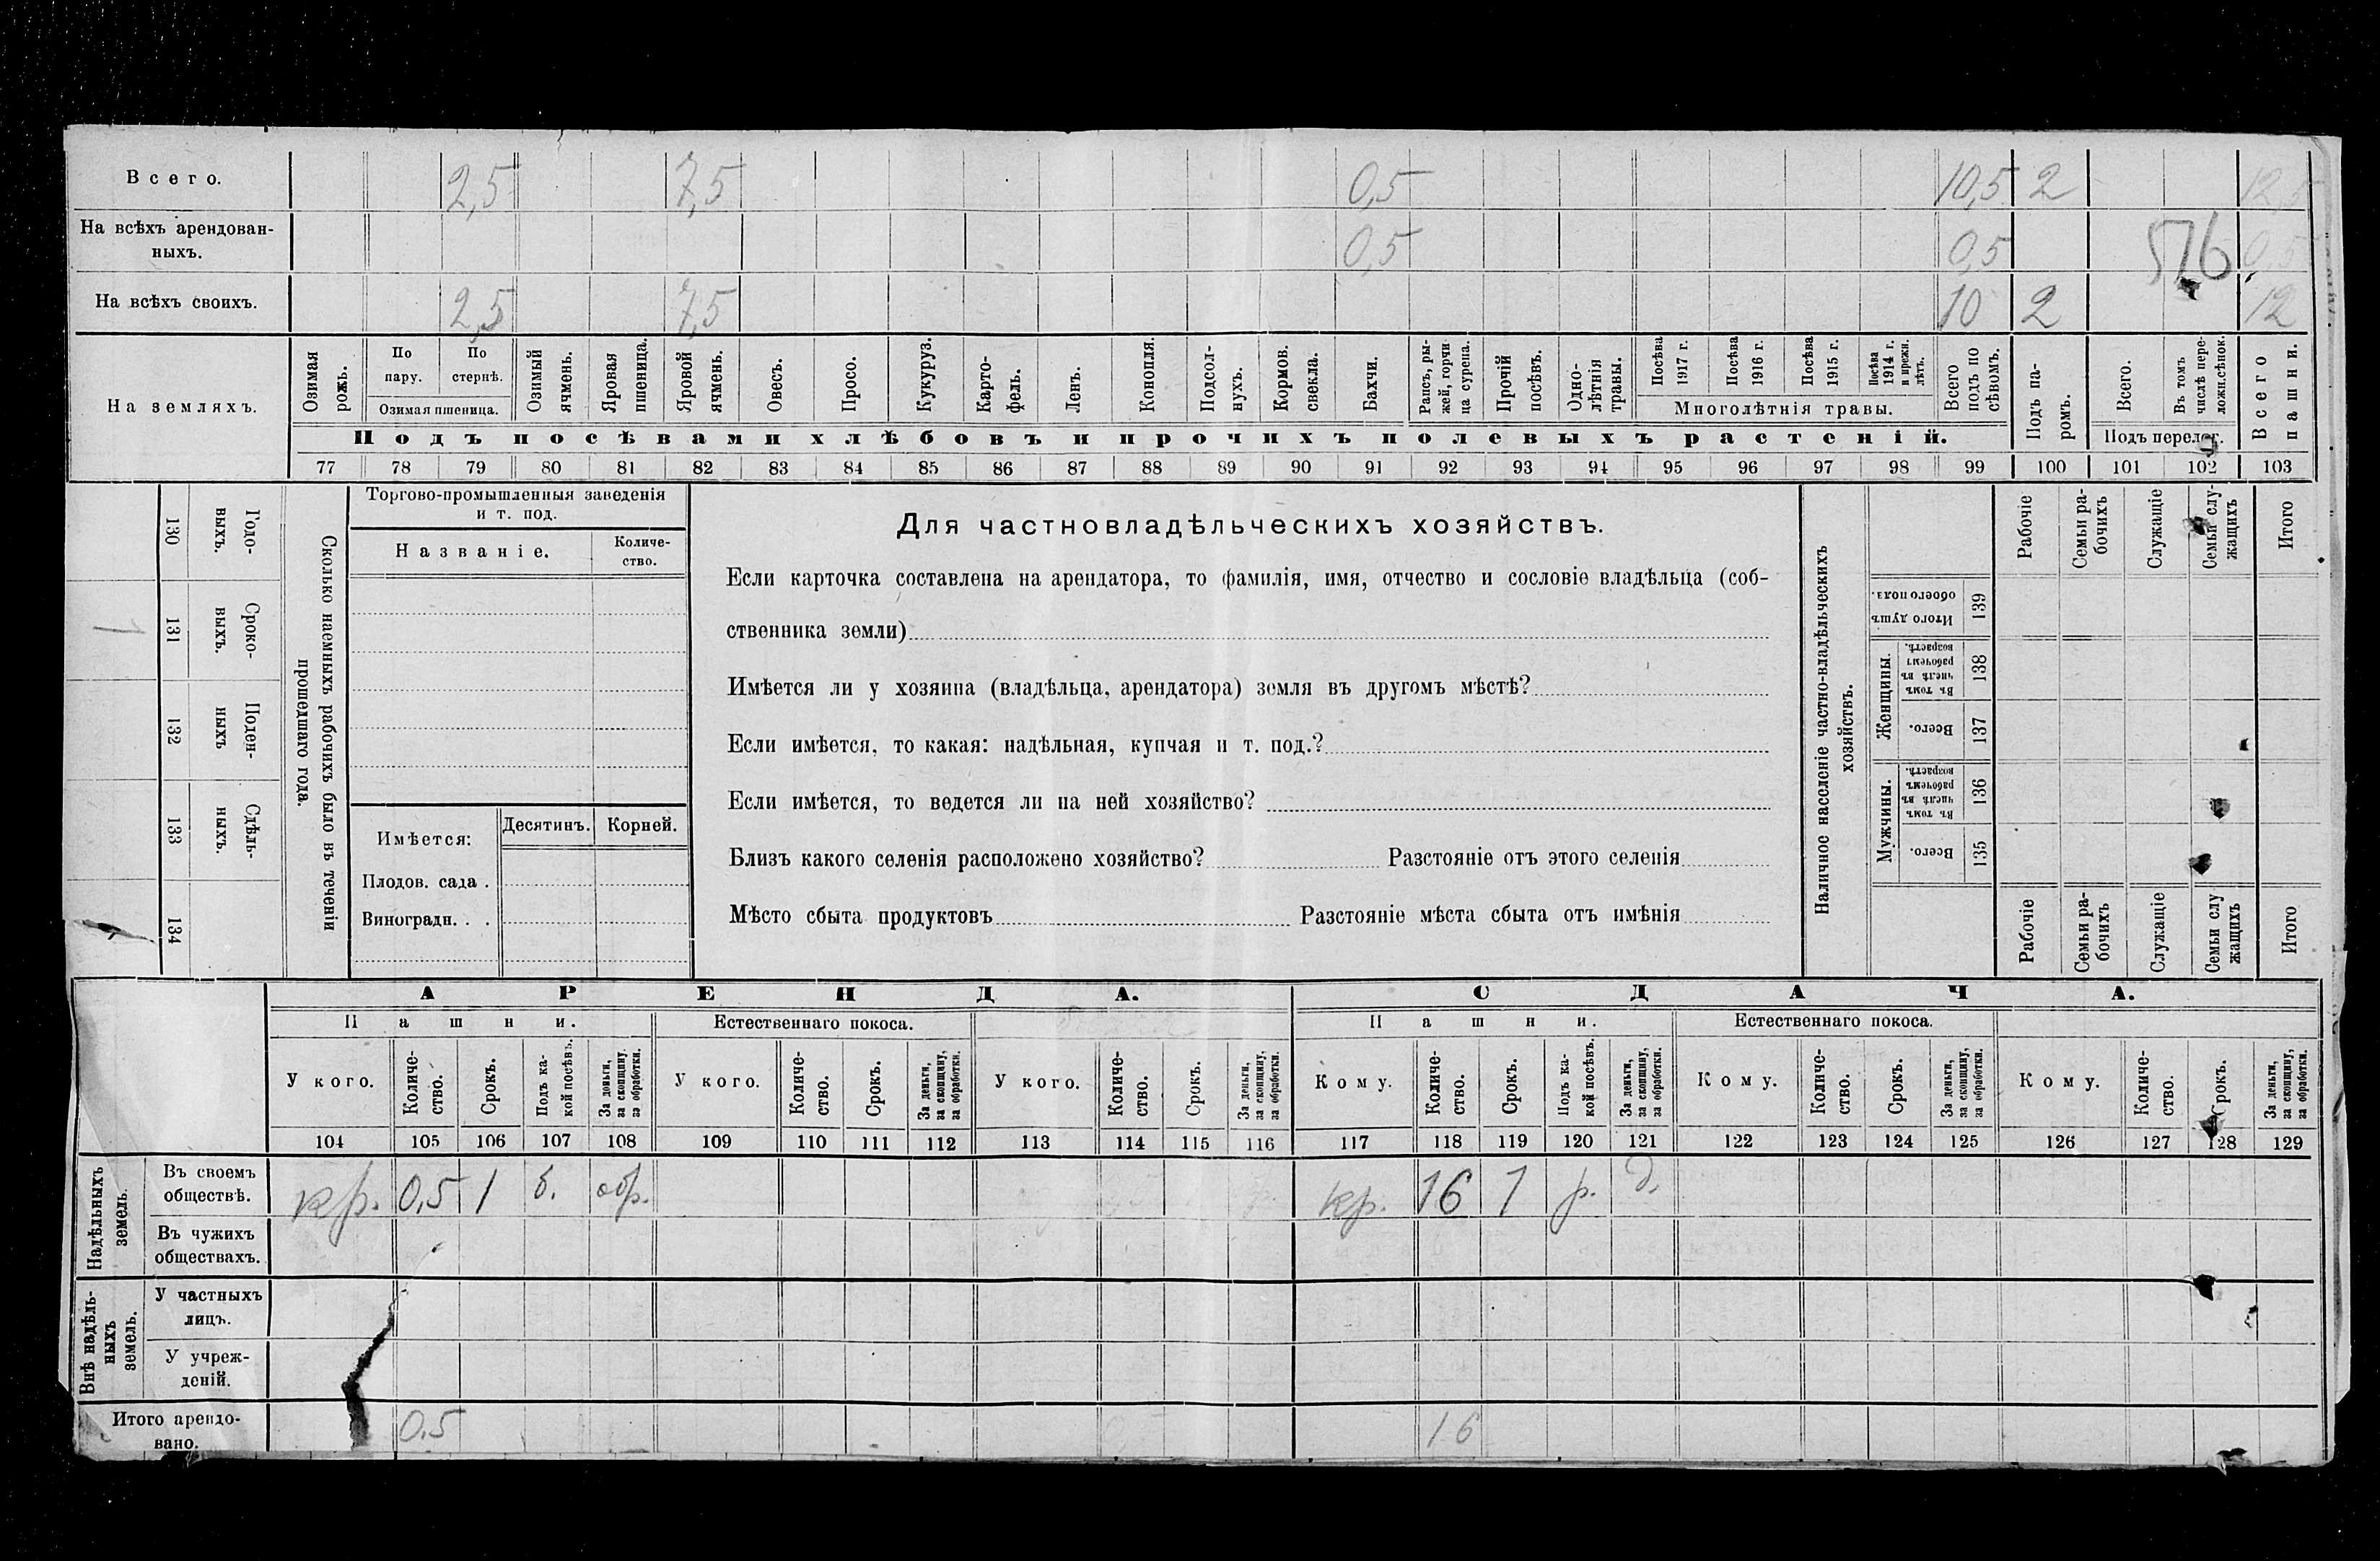 Всего. 2,5 7,5 0,5 10,5 2 12,5
На всѣхъ арендован-
ныхъ. 0,5 0,5 576 0,5
На всѣхъ своихъ. 2,5 7,5 10 2 12
На земляхъ.
Озимая рожь.
По пару.
По стернѣ.
Озимая пшеница.
Озимый ячмень.
Яровая пшеница.
Яровой ячмень.
Овесъ.
Просо.
Кукуруз.
Карто-
фель.
Ленъ.
Конопля.
Подсол-
нухъ.
Кормов. свекла.
Бахчи.
Рапсъ, ры-
жей, горчи
ца сурепа.
Прочій посѣвъ.
Одно-
лѣтнія травы.
Посѣва 1917 г.
Посѣва 1916 г.
Посѣва 1915 г.
Посѣва 1914 г. и прежн. лѣтъ.
Многолѣтнія травы.
Всего подъ по
сѣвомъ.
Подъ па-
ромъ.
Всего.
Въ томъ числѣ пере-
ложн.сѣнок.
Подъ перелог.
Всего пашни.
Подъ посѣвами хлѣбовъ и прочихъ полевыхъ растеній.
77 78 79 80 81 82 83 84 85 86 87 88 89 90 91 92 93 94 95 96 97 98 99 100 101 102 103
Сколько наемныхъ рабочихъ было въ теченіи
прошедшаго года.
Годо-
выхъ.
130
Сроко-
выхъ.
131
1
Поден-
ныхъ
132
Сдѣль-
ныхъ.
133
134
Торгово-промышленныя заведенія
и т. под.
Названіе.
Количе-
ство.
Имѣется:
Десятинъ. Корней.
Плодов. сада .
Виноградн. . .
Для частновладѣльческихъ хозяйствъ.
Если карточка составлена на арендатора, то фамилія, имя, отчество и сословіе владѣльца (соб-
ственника земли)
Имѣется ли у хозяина (владѣльца, арендатора) земля въ другомъ мѣстѣ?
Если имѣется, то какая: надѣльная, купчая и т. под.?
Если имѣется, то ведется ли на ней хозяйство?
Близъ какого селенія расположено хозяйство? Разстояніе отъ этого селенія
Мѣсто сбыта продуктовъ Разстояніе мѣста сбыта отъ имѣнія
Наличное населеніе частно-владѣльческихъ
хозяйствъ.
Рабочіе
Семьи ра-
бочихъ
Служащіе
Семьи слу-
жащихъ
Итого
Итого душъ обоего пола.
139
Женщины.
Въ томъ числѣ въ рабочемъ возрастѣ.
138
Всего.
137
Мужчины.
Въ томъ числѣ въ рабочемъ возрастѣ.
136
Всего.
135
Рабочіе
Семьи ра-
бочихъ
Служащіе
Семьи слу
жащихъ
Итого
АРЕНДА. СДАЧА.
Пашни. Естественнаго покоса. Пашни. Естественнаго покоса.
У кого.
Количе-
ство.
Срокъ.
Подъ ка-
кой посѣвъ.
За деньги, за скопщину, за обработки.
У кого.
Количе-
ство.
Срокъ.
За деньги, за скопщину, за обработки.
У кого.
Количе-
ство.
Срокъ.
За деньги, за скопщину, за обработки.
Кому.
Количе-
ство.
Срокъ.
Подъ ка-
кой посѣвъ.
За деньги, за скопщину, за обработки.
Кому.
Количе-
ство.
Срокъ.
За деньги, за скопщину, за обработки.
Кому.
Количе-
ство.
Срокъ.
За деньги, за скопщину, за обработки.
104 105 106 107 108 109 110 111 112 113 114 115 116 117 118 119 120 121 122 123 124 125 126 127 128 129
Надѣльныхъ
земель.
Въ своемъ
обществѣ. кр. 0,5 1 б. обр. кр. 16 1 р. д.
Въ чужихъ
обществахъ.
Внѣ надѣль-
ныхъ
земель.
У частныхъ
лицъ.
У учреж-
деній.
Итого арендо-
вано. 0.5 16